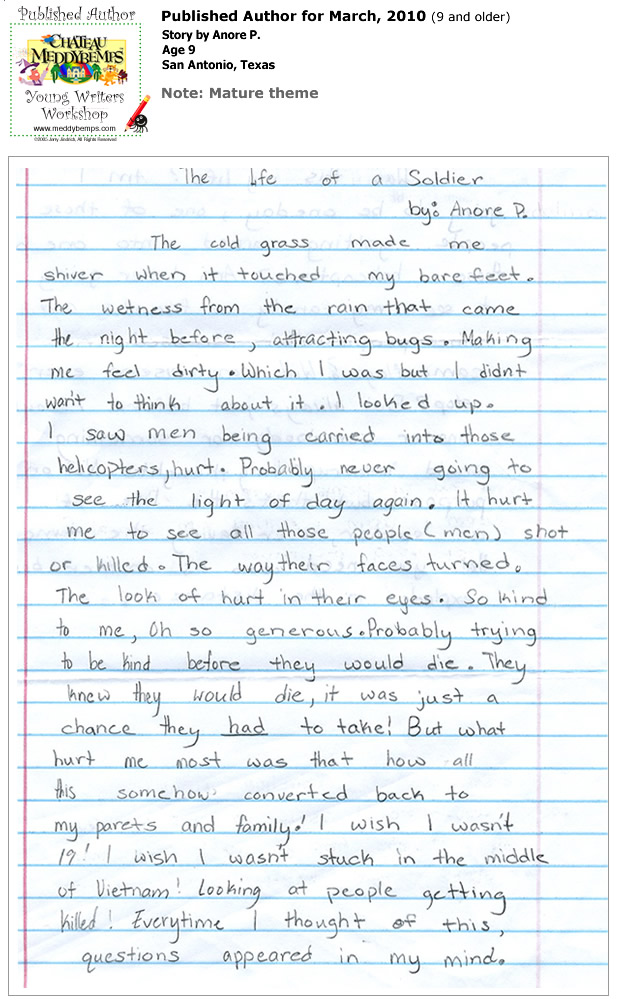 Published Author
CHATEAU
MEDDYBEMPS
Young Writers
Workshop
www.meddybemps.com
Published Author for March, 2010 (9 and older)
Story by Anore P.
Age 9
San Antonio, Texas
Note: Mature theme
The life of a Soldier
by: Anore P.
The cold grass made me
shiver when it touched my bare feet.
The wetness from the rain that came
the night before, attracting bugs. Making
me feel dirty. Which I was but I didnt
wan't to think about it. I looked up.
I saw men being carried into those
helicopters, hurt. Probably never going to
see the light of day again. It hurt
me to see all those people (men) shot
or killed. The way their faces turned.
The look of hurt in their eyes. So kind
to me, Oh so generous. Probably trying
to be kind before they would die. They
knew they would die, it was just a
chance they had to take! But what
hurt me most was that how all
this somehow converted back to
my parets and family! I wish I wasn't
19! I wish I wasn't stuck in the middle
of Vietnam! Looking at people getting
killed! Everytime I thought of this,
questions appeared in my mind.